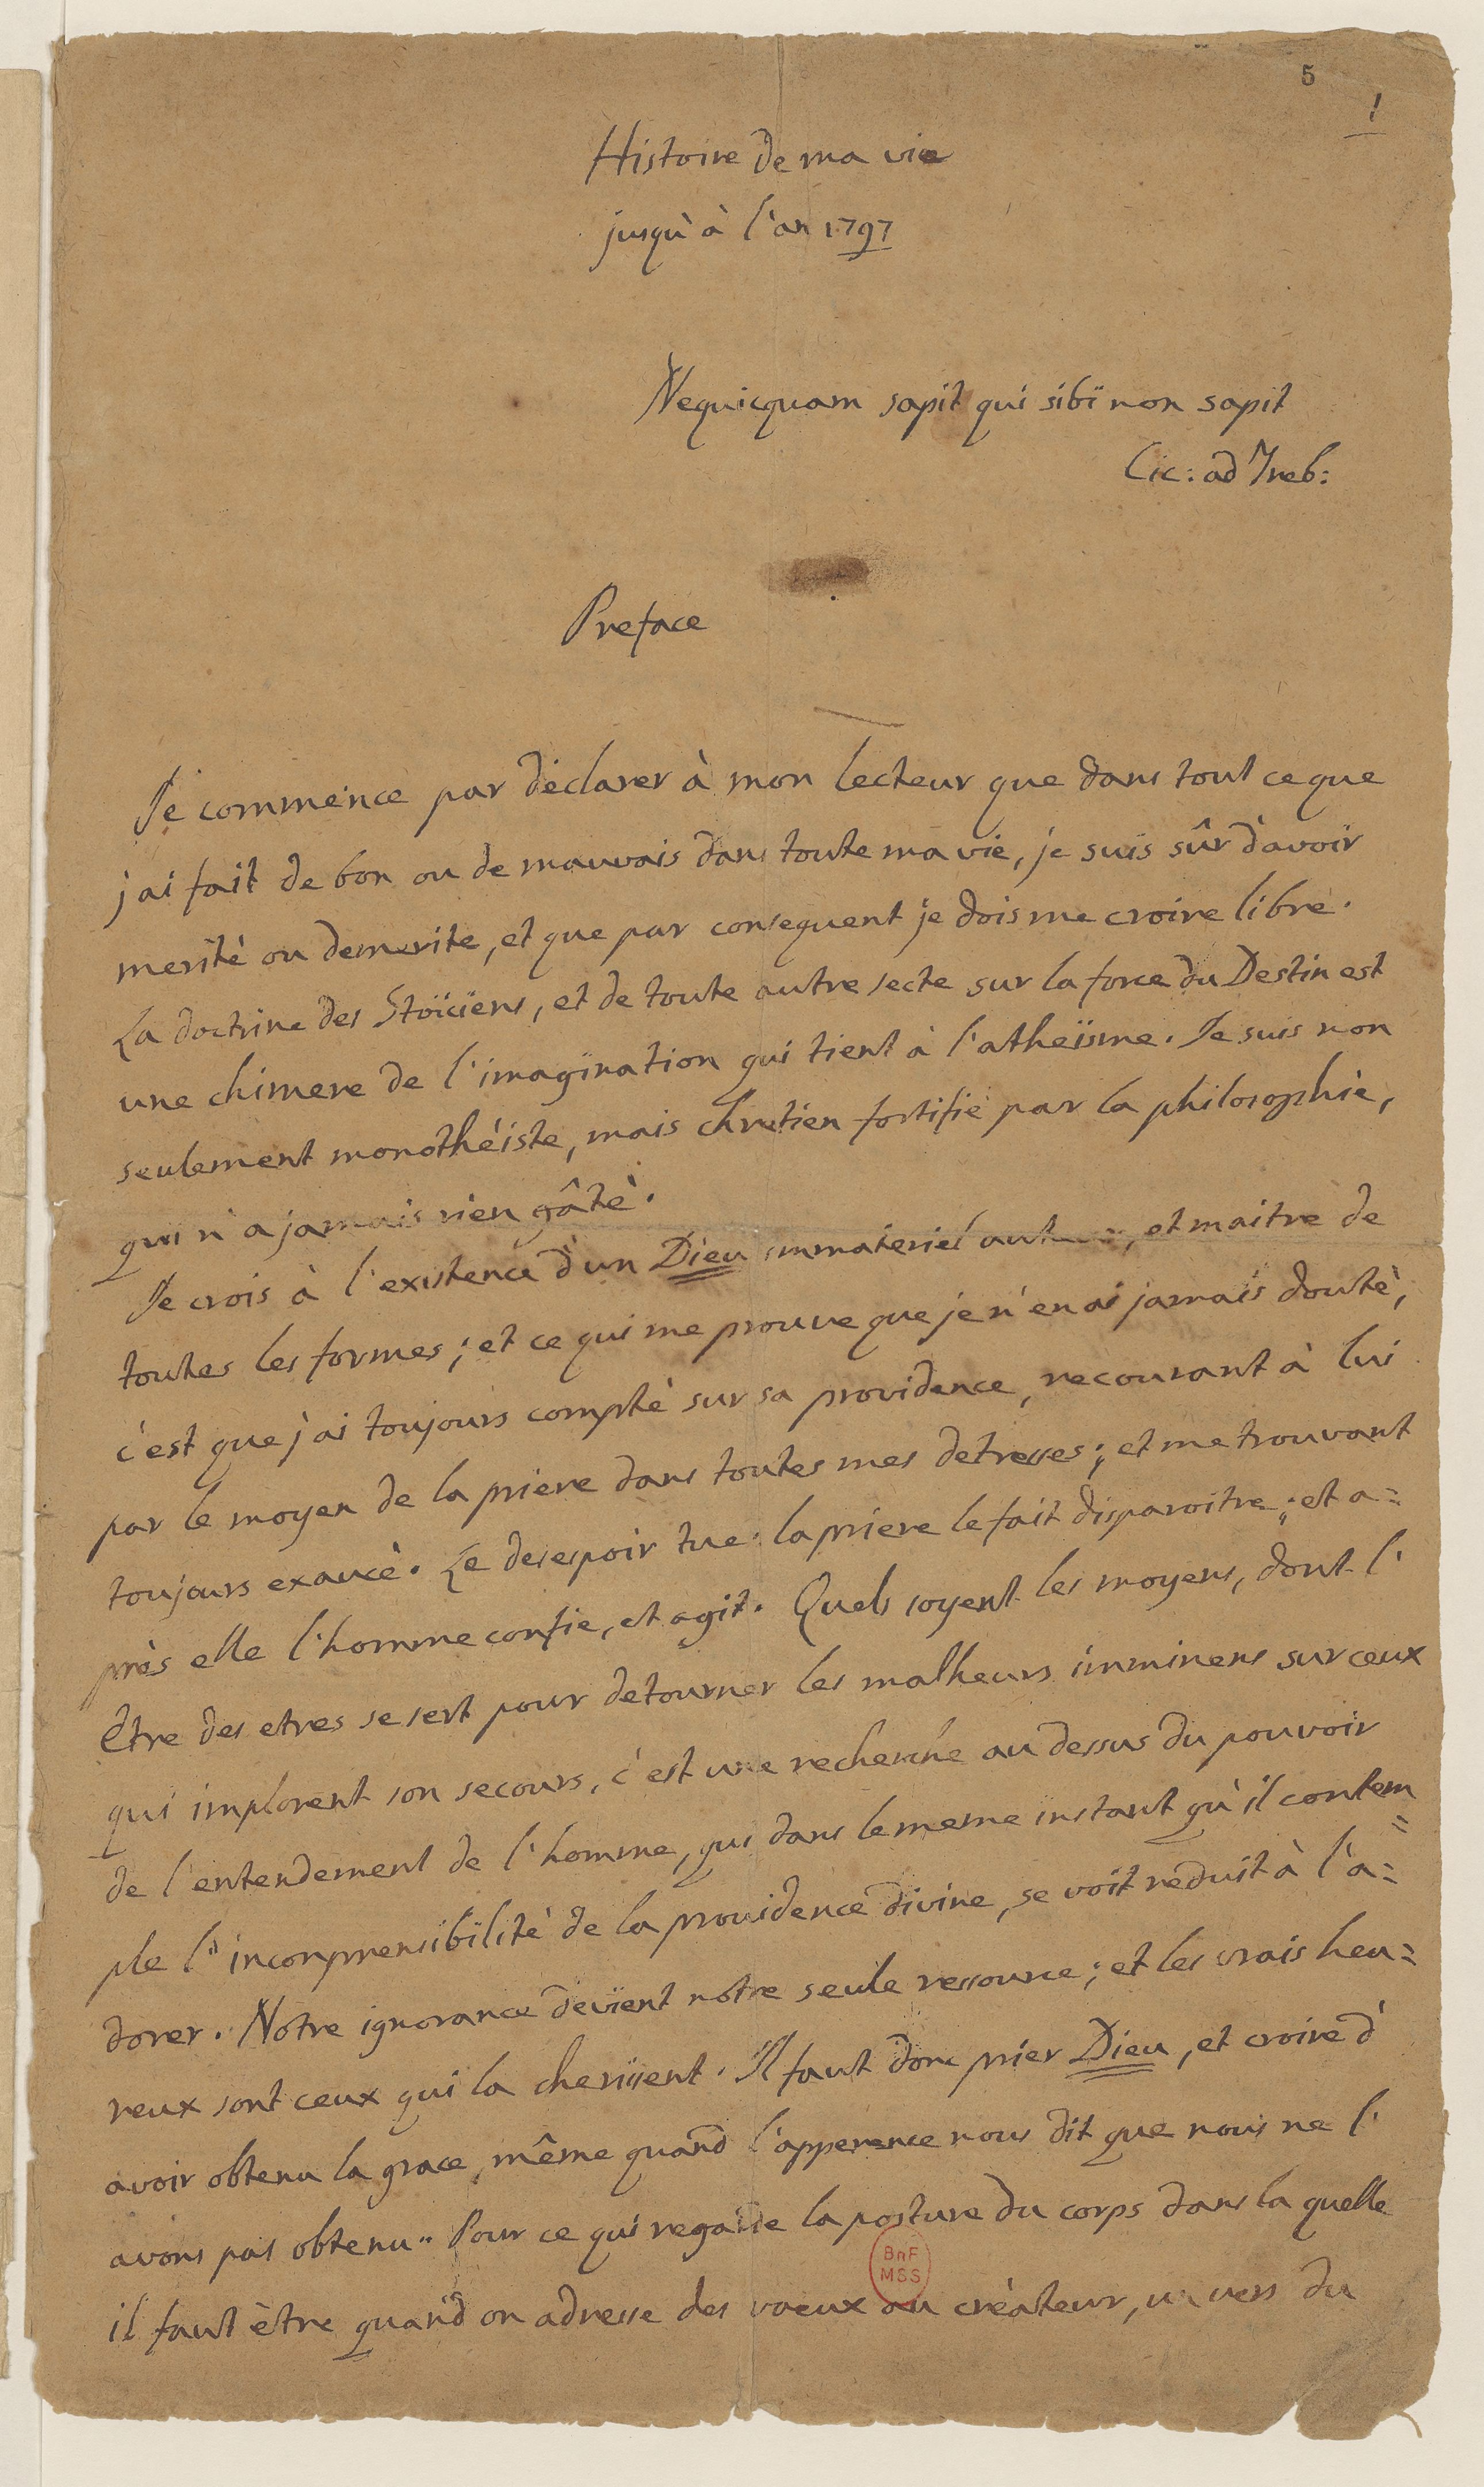 5
1
Histoire de ma vie
jusqu'à l'an 1797
Nequicquam sapit qui sibi non sapit
Cic: ad Treb:
Preface
Je commence par déclarer à mon lecteur que dans tout ce que
j'ai fait de bon ou de mauvais dans toute ma vie, je suis sûr d'avoir
merité ou demerite, et que par consequent je dois me croire libre.
La doctrine des Stoïciens, et de toute autre secte sur la force du Destin est
une chimere de l'imagination qui tient à l'atheïsme. Je suis non
seulement monothéiste, mais chretien fortifié par la philosophie,
qui n'a jamais rien gâté.
Je crois à l'existence d'un Dieu immateriel auteur, et maitre de
toutes les formes; et ce qui me prouve que je n'en ai jamais douté,
c'est que j'ai toujours compté sur sa providence, recourant à lui
par le moyen de la priere dans toutes mes detresses; et me trouvant
toujours exaucé. Le desespoir tue: la priere le fait disparoitre; et a=
près elle l'homme confie, et agit. Quels soyent les moyens, dont l'
Etre des etres se sert pour detourner les malheurs imminens sur ceux
qui implorent son secours, c'est une recherche au dessus du pouvoir
de l'entendement de l'homme, qui dans le meme instant qu'il contem=
ple l'incomprensibilité de la providence divine, se voit reduit à l'a=
dorer. Notre ignorance devient notre seule ressource; et les vrais heu=
reux sont ceux qui la cherissent. Il faut donc prier Dieu, et croire d'
avoir obtenu la grace, même quand l'apperence nous dit que nous ne l'
avons pas obtenu. Pour ce qui regarde la posture du corps dans la quelle
il faut être quand on adresse des voeux au créateur, un vers du
BnF
MSS